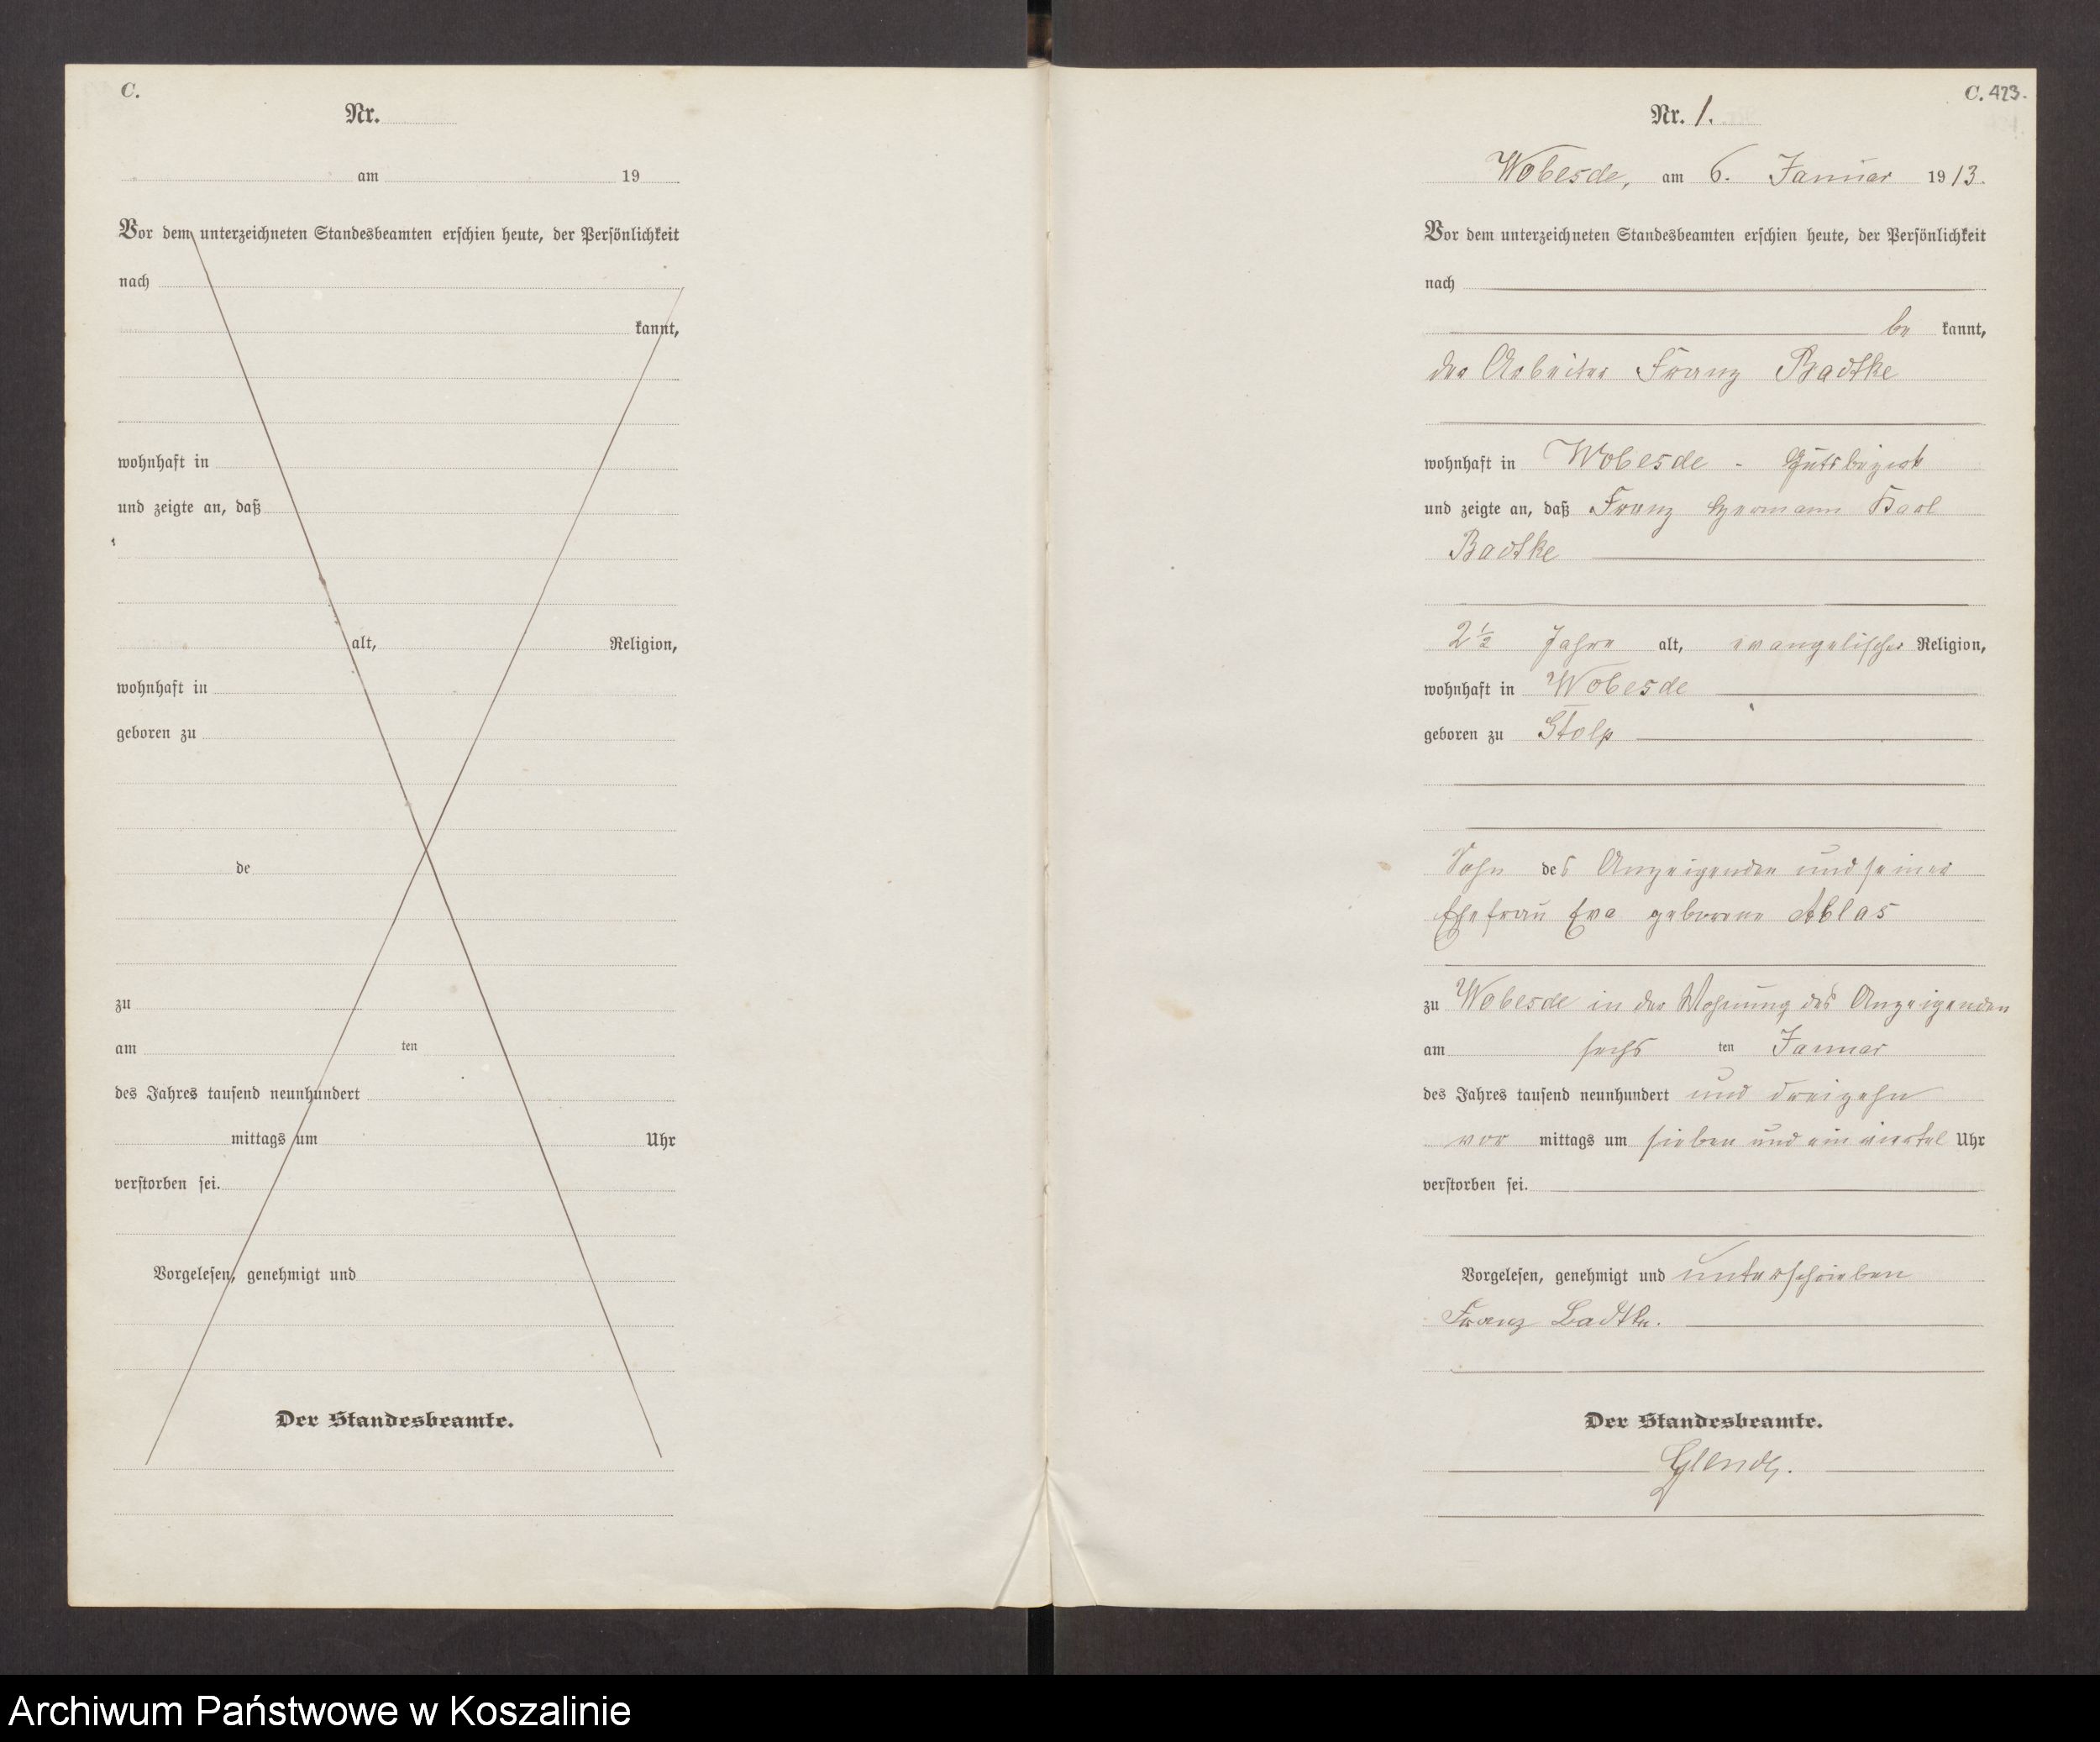 C.
Nr.
am 19
Vor dem unterzeichneten Standesbeamten erschien heute, der Persönlichkeit
nach
kannt,
wohnhaft in
und zeigte an, daß
alt, Religion,
wohnhaft in
geboren zu
de
zu
am ten
des Jahres tausend neunhundert
mittags um Uhr
verstorben sei.
Vorgelesen, genehmigt und
Der Standesbeamte.
C. 423.
Nr. 1.
Wobesde, am 6. Januar 1913.
Vor dem unterzeichneten Standesbeamten erschien heute, der Persönlichkeit
nach
be kannt,
der Arbeiter Franz Badtke
wohnhaft in Wobesde - Gutsbezirk
und zeigte an, daß Franz Hermann Karl
Badtke
2 ½ Jahre alt, evangelischer Religion,
wohnhaft in Wobesde
geboren zu Stolp
Sohn des Anzeigenden und seiner
Ehefrau Eva geborene Ablas
zu Wobesde in der Wohnung des Anzeigenden
am sechs ten Januar
des Jahres tausend neunhundert und dreizehn
vor mittags um sieben und ein viertel Uhr
verstorben sei.
Vorgelesen, genehmigt und unterschrieben
Franz Badtke.
Der Standesbeamte.
Archiwum Państwowe w Koszalinie